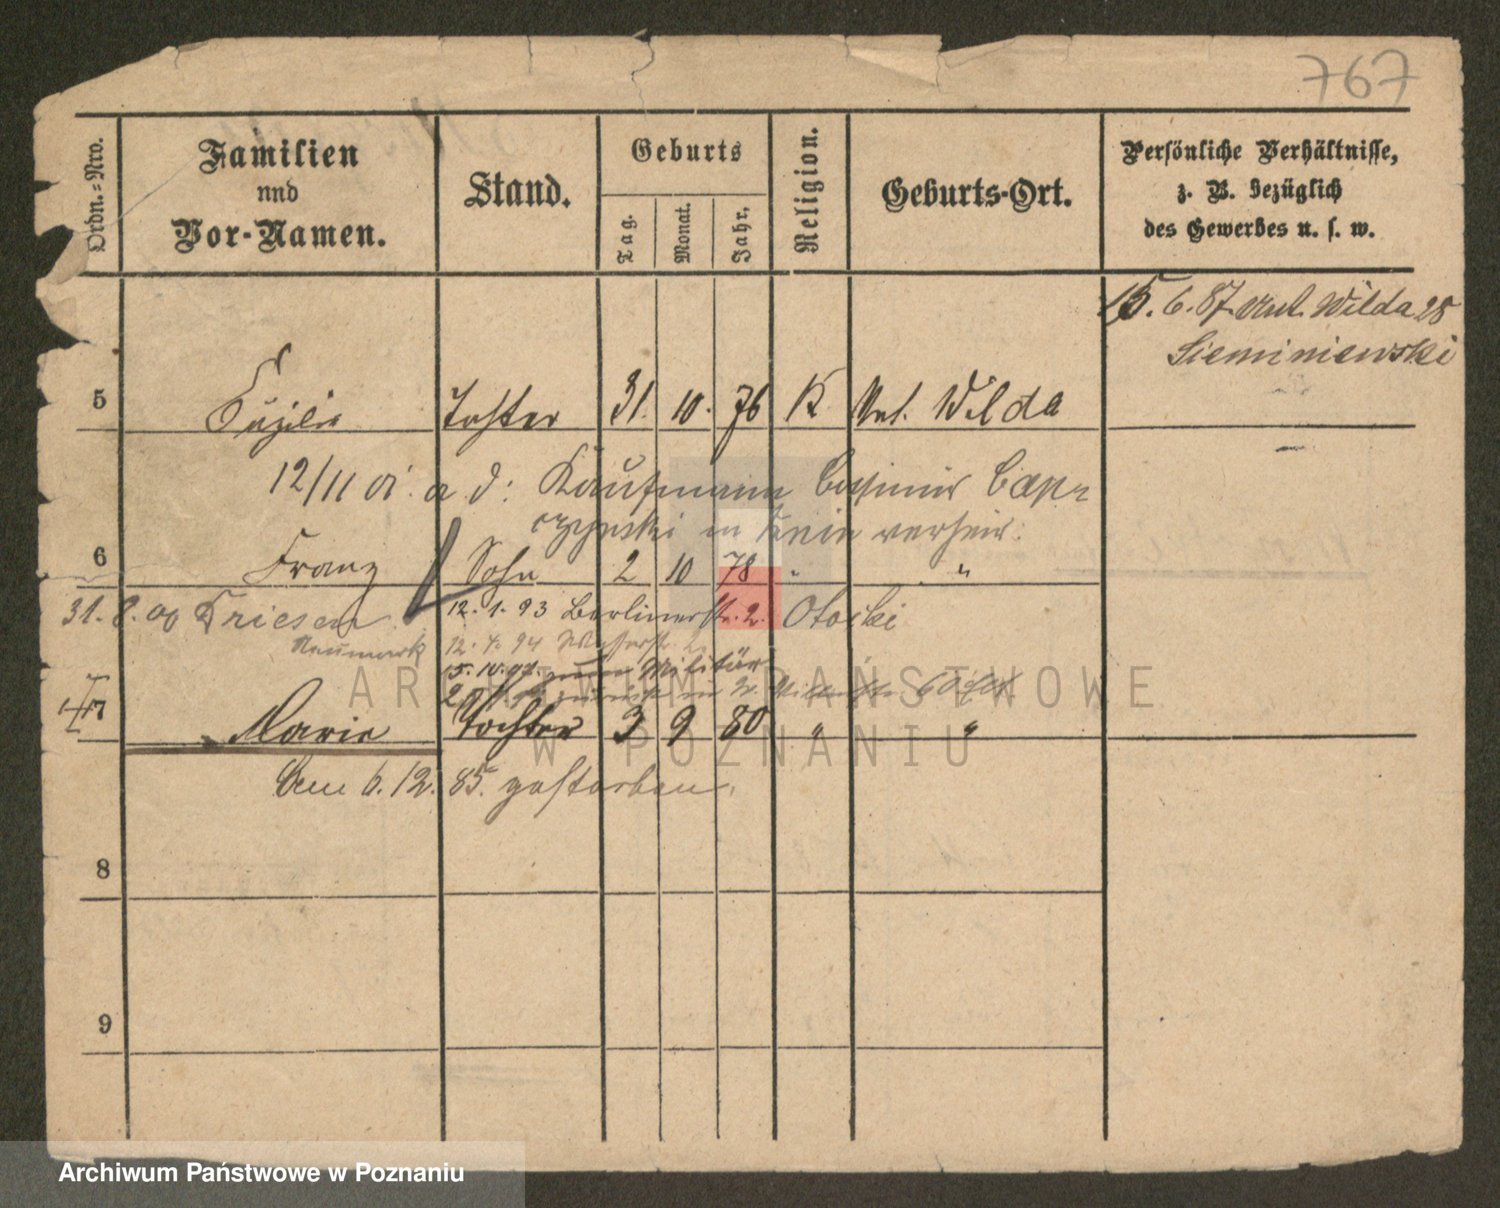 767
Ordn.=Nro.
Familien
und
Vor-Namen.
Stand.
Geburts
Tag.
Monat.
Jahr.
Religion.
Geburts-Ort.
Persönliche Verhältnisse,
z. B. bezüglich
des Gewerbes u. s. w.
15. 6. 87. Unt. Wilda 28
Sieminiewski
5 Cäzilie Tochter 31. 10. 76 K Unt. Wilda
12/11 01. a. d: Kaufmann Casimir
in verheir.
6 Franz Sohn 2 10 78 " "
31. 8. 00 Driesen 12. 1. 93 Berlinerstr. 2. Otocki
Neumark 12. 4. 94 Wasserstr. 2
15. 10. 97. zum Militär
zurück
† 7 Marie Tochter 3 9 80 " "
Am 6. 12. 85. gestorben.
8
9
ARCHIWUM PAŃSTWOWE
W POZNANIU
Archiwum Państwowe w Poznaniu